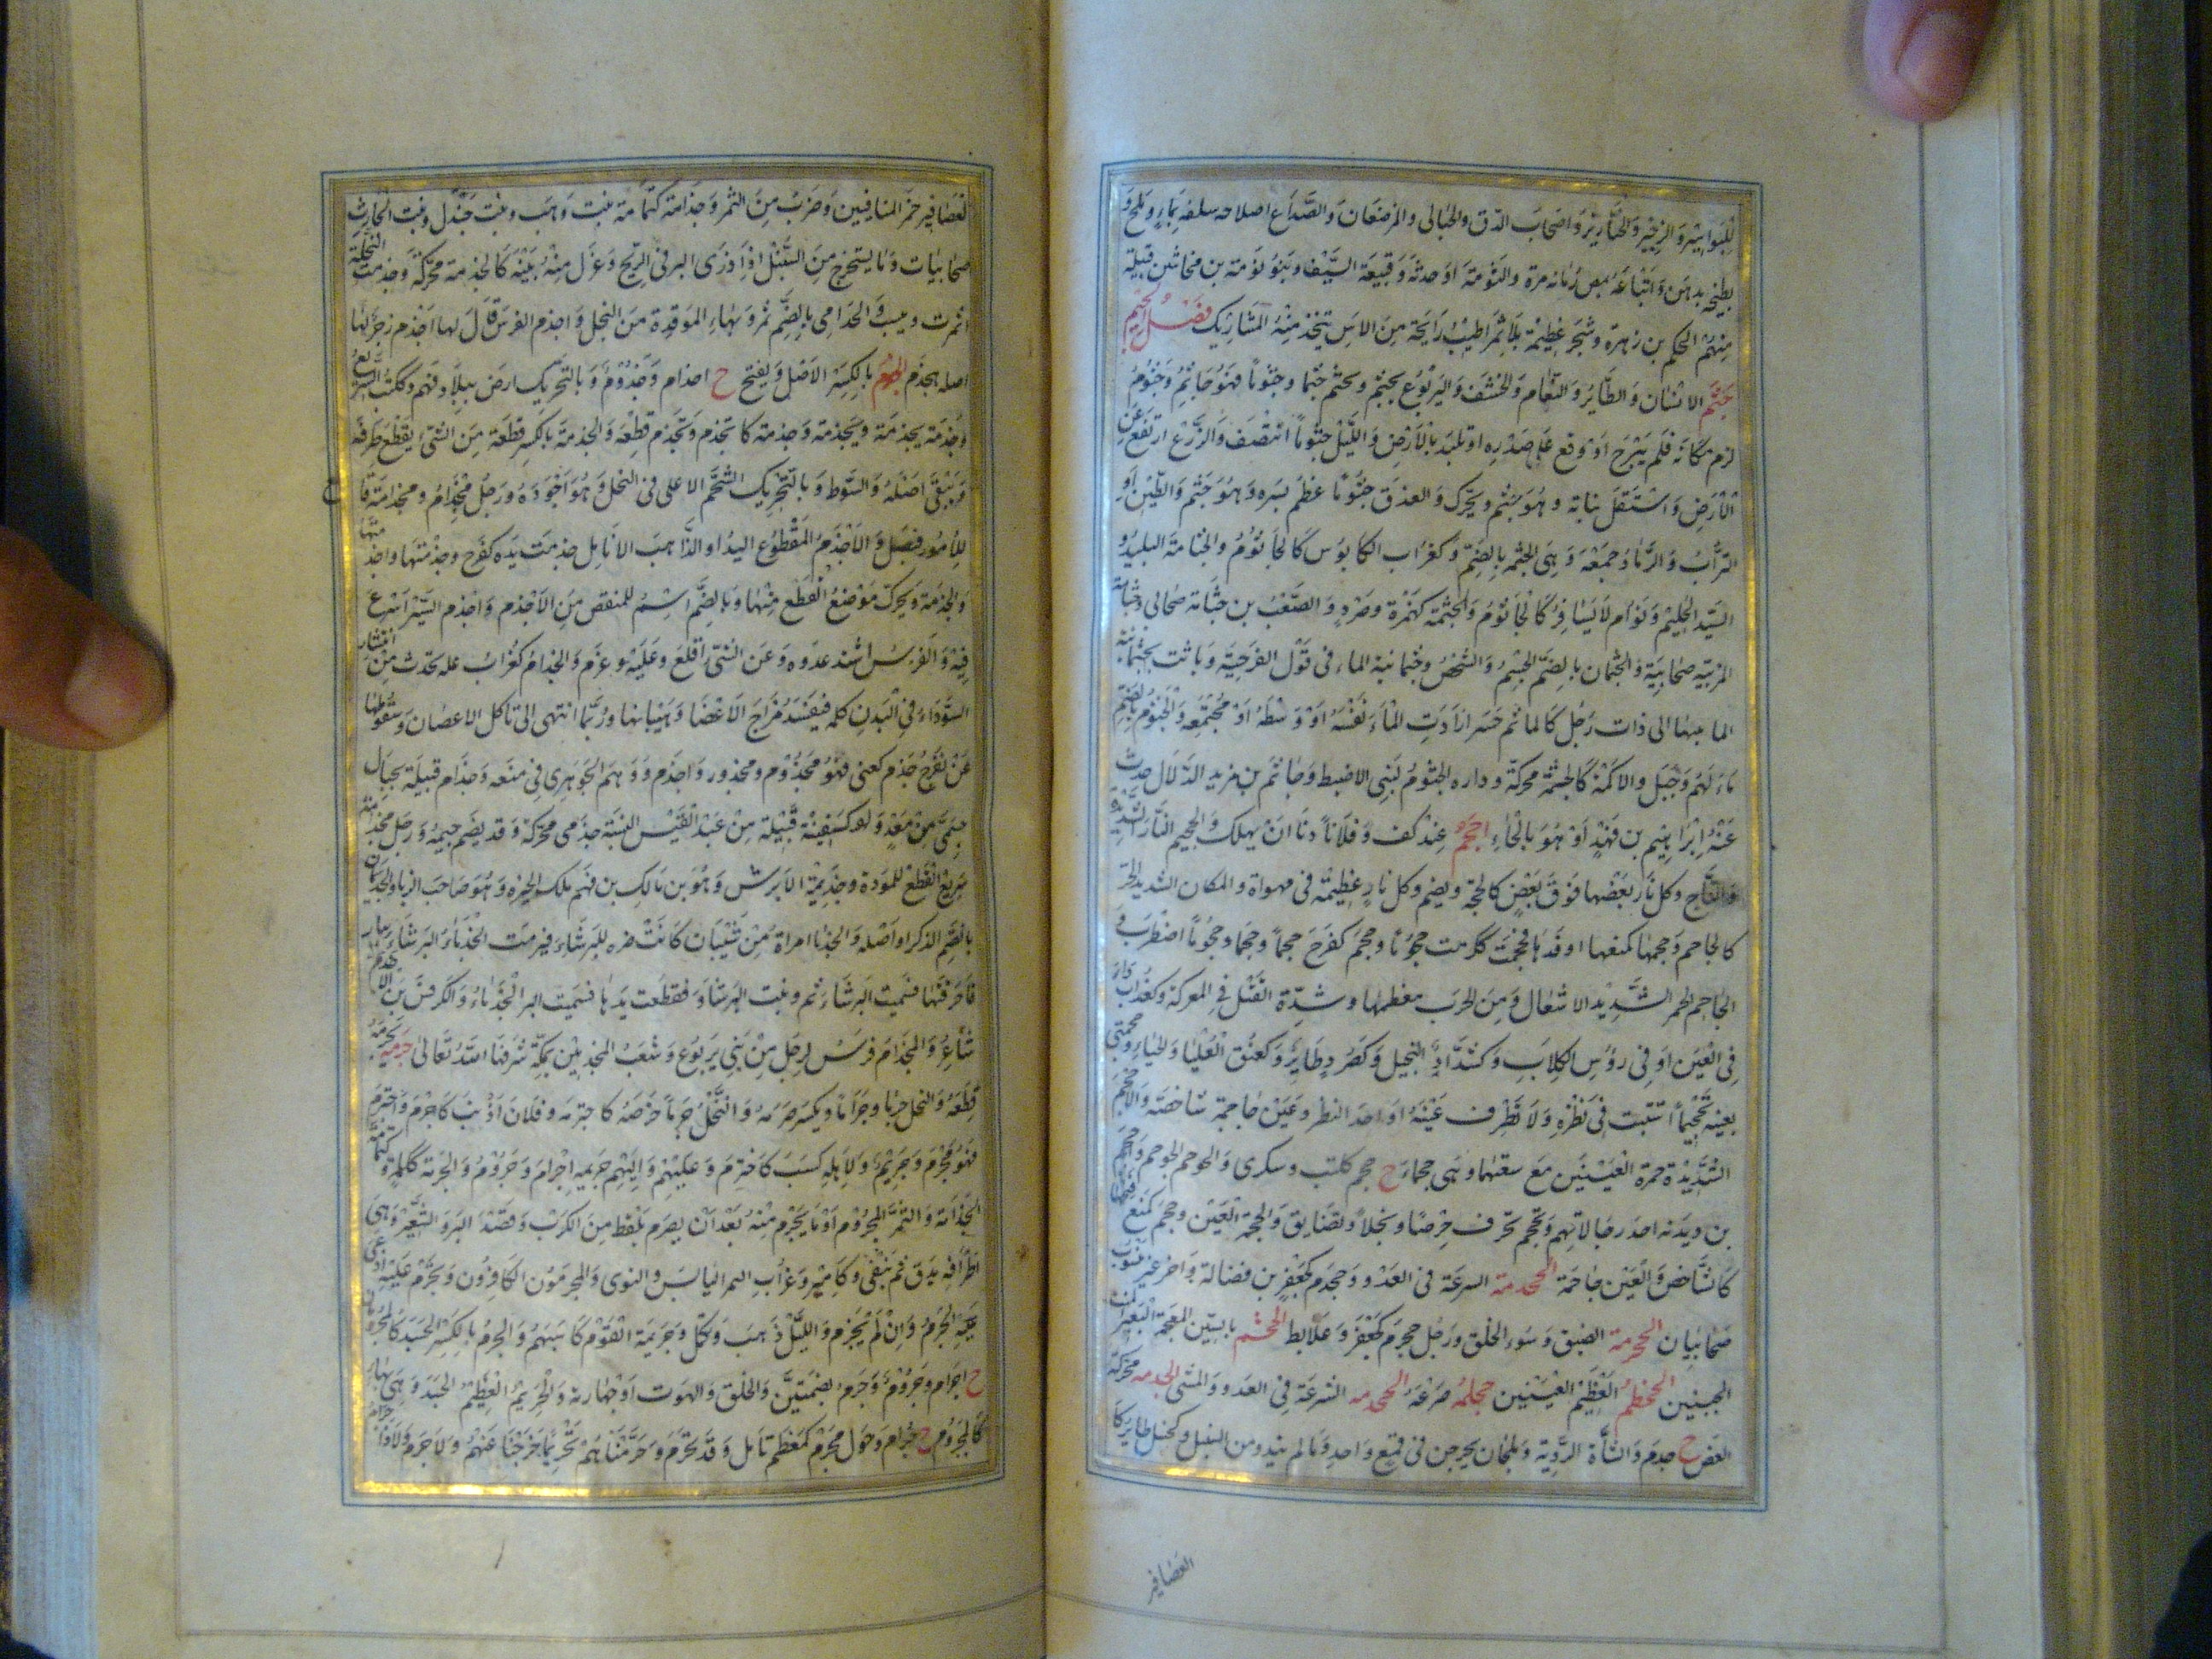 للبواسير والزحير والخنازير واصحاب الدق والحبالى والمرضعان والصداع اصلاحه سلقه بماء وملح و
بطبخه بدهن واتباعه بمص رمانه مزة والثومة اوحدثة وقبيعة السيف وبنو ثومة بن مخاشن قبيلة
منهم الحكم بن زهرة وشجر عظيمة بلا ثمر اطيب رايحة من الاس يتخذ منه المشاريك فصل الجيم
جثم الانسان والطاير والنعام والخشف واليربوع يجثم ويجثم جثما وجثوما فهو جاثم وجثوم
لزم مكانه فلم يبرح او وقع على صدره او تلبد بالارض والليل جثوما انتصف والزرع ارتفع عن
الارض واستقل نباته وهو جثم ويحرك والعذق جثوما عظم بسره وهو جثم والطين او
التراب والرماد جمعه وهى الجثمه بالضم وكغراب الكابوس كالجاثوم والجثامة البليد و
السيد الحليم ونوام لا يسافر كالجاثوم والجثمة كهمزة وصرد والصعب بن جثامة صحابى وجثامة
المزنية صحابية والجثمان بالضم الجسم والشخص وجثمانية الماء فى قول الفرجية وباتت بجثمانية
الما نيبها الى ذات رجل كالماثم حسر ارادت الماء نفسه او وسطه او مجتمعه والجثوم بالضم
ماء لهم وجبل والاكمة كالجثمة محركة ودارة الجثوم لبنى الاضبط وجاثم بن مريد الدلال حدث
عنه ابراهيم بن فهد او هو بالحاء احجم عنه كف وفلانا دنا ان يهلك والجحيم النار الشديدة
التاجج وكل نار بعضها فوق بعض كالجحمة ويضم وكل نار عظيمة فى مهواة والمكان الشديد الحر
كالجاحم وجحمها كمنعها اوقدها فجحمت ككرمت جحوما وجحم كفرح جحما وجحما وجحوما اضطرب و
الجاحم الجمر الشديد الاشتعال ومن الحرب معظمها وشدة القتل فى المعركة وكغراب داء
فى العين او فى رؤس الكلاب وكشداد البخيل وكصرد طاير وكعنق القليا والحياء وجحمنى
بعينه تجحيما استثبت فى نظره ولا تطرف عينه او احد النظر وعين جاحمة شاخصة والاجحم
الشديدة حمرة العينين مع سعتهما وهى جحماء ج جحم كلتب وسكرى والجوحم الحوجم واجحم
بن ويدنه احد رجالاتهم وتجحم تحرف حرصا وبخلا وتضايق والجحمة العين وجحم كمنع فتحها
كالشاخص والعين جاحمة الجحدمة السرعة فى العدو وجحدم كجعفر بن فضالة واخر غير منسوب
صحابيان الجحرمة الضيق وسوء الخلق ورجل جحرم كجعفر وعلابط الجحشم بالشين المعجمة البعير المنتفخ
الجبنين الجحظم العظيم العينين جحلمه صرعه الجخدمه السرعة فى العدو والمشى الجدمه محركة
العض ج جدم والشاة الردية وبلحان يخرجن فى قمع واحد وما لم يندق من السنبل وكجبل طاير كا
العصافير
لعصافير حمر المناقيين وضرب من التمر وجدامة كثمامة بنت وهب وبنت جندل وبنت الحارث
صحابيات وما يستخرج من السنبل اذا ذرى البر فى الريح وعزل منه تبينه كالجدمة محركة وجدمت النخلة
اثمرت ويبس والجدامى بالضم تمر وبهاء الموقرة من النخل واجدم الفرس قال لها اجدم زجر لها
اصله هجدم الجذم بالكسر الاصل ويفتح ج اجذام وجذوم وبالتحريك ارض ببلاد فهم وككتف السريع
وجذمه يجذمه ويجذمه وجذمة كاتجذم وتجذم قطعه والجذمة بالكسر قطعة من الشئ يقطع طرفه
ويبقى اصله والسوط وبالتحريك الشحم الاعلى فى النخل وهو اجوده ورجل مجذام ومجذامة قا
للامور فيصل والاجذم المقطوع اليد او الذاهب الانامل جذمت يده كفرح وجذمتها واجذمتها
والجذمة ويحرك موضع القطع منها وبالضم اسم للنقص من الاجذم واجذم السير اسرع
فيه والفرس اشتد عدوه وعن الشئ اقلع وعليه عزم والجذام كغراب علة تحدث من انتشار
السوداء فى البدن كله فيفسد مزاج الاعضا وهيئاتها وربما انتهى الى تاكل الاعضان وسقوطها
عن تقرح جذم كعنى فهو مجذوم ومجذور واجذم ووهم الجوهرى فى منعه وجذام قبيلة بجبال
حسمى من معد وكسفينة قبيلة من عبد القيس النسبة جذمى محركة وقد يضم جيمه ورجل مجذمة
سريع القطع للمودة وجذيمة الابرش وهو بن مالك بن فهم ملك الحيرة وهو صاحب الزبا والجذمان
بالضم الذكر او اصله والجذما امراة من شيبان كانت ضره للبرشاء فرمت الجذماء البرشاء بنار
فاحرقتها فسميت البرشاء ثم وثبت البرشاء فقطعت يدها فسميت البر الجذماء والكروس بن الاجذم
شاعر والمجذام فرس لرجل من بنى يربوع وشعب المجذمين بمكة شرفها الله تعالى جرمه يجرمه
قطعه والنخل جرما وجراما ويكسر صرمه والنخل جرما خرصه كاجترمه وفلان اذنب كاجرم واجترم
فهو مجرم وجريم ولاهله كسب كاجترم وعليهم واليهم جريمة اجرام وجروم والجرمة كالكلمة وكثمامة
الجذامة والتمر المجروم او ما يجرم منه بعد ان يصرم يلقط من الكرب وقصد البر والشعير وهى
اطرافه تدق ثم تنقى وكامير وغراب التمر اليابس والنوى والمجرمون الكافرون وتجرم عليه ادعى
عليه الجرم وان لم يجرم والليل ذهب وكمل وجريمة القوم كاسبهم والجرم بالكسر الجسد كالجرمان
ج اجرام وجروم وجرم بضمتين والحلق والصوت او جهارته والجريم العظيم الجسد وهى بهاء
كالمجروم ج جرام وحول مجرم كمعظم تام وقد تجرم وجرمناهم تجريما خرجنا عنهم ولا جرم ولا ذا